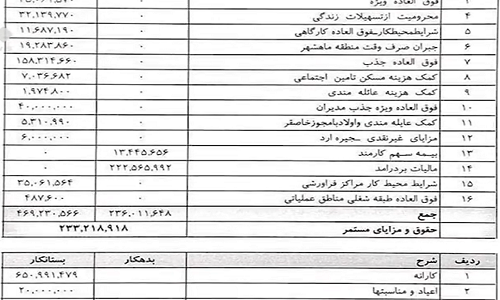 ۳ فوق العاده ویژه ۰
۴ محرومیت ازتسهیلات زندگی ۰ ۳۲,۱۳۹,۷۷۰
۵ شرایط‌محیط‌کار_فوق العاده کارگاهی ۰ ۱۱,۶۸۷,۱۹۰
۶ جبران صرف وقت منطقه ماهشهر ۰ ۱۹,۲۸۳,۸۶۰
۷ فوق العاده جذب ۰ ۱۵۸,۳۱۴,۶۶۰
۸ کمک هزینه مسکن تامین اجتماعی ۰ ۷,۰۳۶,۶۸۲
۹ کمک هزینه عائله مندی ۰ ۱,۹۷۴,۸۰۰
۱۰ فوق العاده ویژه جذب مدیران ۰ ۴۰,۰۰۰,۰۰۰
۱۱ کمک عایله مندی واولادبامجوزخاصقر ۰ ۵,۳۱۰,۹۹۰
۱۲ مزایای غیرنقدی _جیره ارد ۰ ۶,۰۰۰,۰۰۰
۱۳ بیمه سهم کارمند ۱۳,۴۴۵,۶۵۶ ۰
۱۴ مالیات بردرآمد ۲۲۲,۵۶۵,۹۹۲ ۰
۱۵ شرایط محیط کار مراکز فراورشی ۰ ۳۵,۰۶۱,۵۶۴
۱۶ فوق العاده طبقه شغلی مناطق عملیاتی ۰ ۴۸۷,۶۰۰
جمع ۲۳۶,۰۱۱,۶۴۸ ۴۶۹,۲۳۰,۵۶۶
حقوق و مزایای مستمر ۲۳۳,۲۱۸,۹۱۸
ردیف شرح بدهکار بستانکار
۱ کارانه ۰ ۶۵۰,۹۹۱,۴۷۹
۲ اعیاد و مناسبتها ۰ ۲۰,۰۰۰,۰۰۰